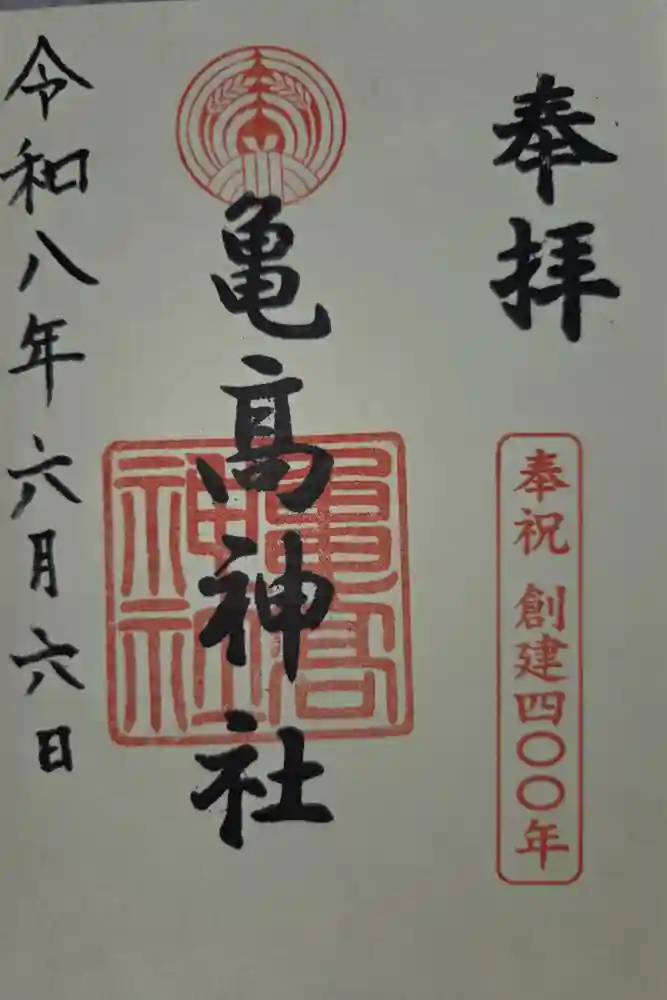 奉拝
奉祝 創建四〇〇年
亀高神社
亀高
神社
令和八年六月六日